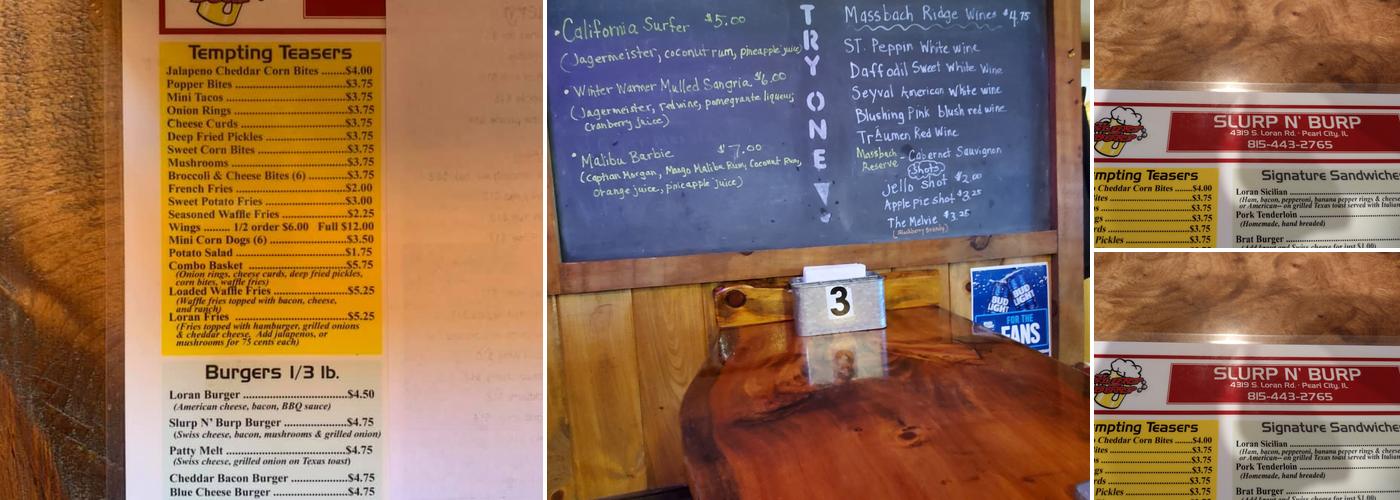 Tempting Teasers
Jalapeno Cheddar Corn Bites ......$4.00
Popper Bites ......$3.75
Mini Tacos ......$3.75
Onion Rings ......$3.75
Cheese Curds ......$3.75
Deep Fried Pickles ......$3.75
Sweet Corn Bites ......$3.75
Mushrooms ......$3.75
Broccoli & Cheese Bites (6) ......$3.75
French Fries ......$2.00
Sweet Potato Fries ......$3.00
Seasoned Waffle Fries ......$2.25
Wings ...... 1/2 order $6.00 Full $12.00
Mini Corn Dogs (6) ......$3.50
Potato Salad ......$1.75
Combo Basket ......$5.75
(Onion rings, cheese curds, deep fried pickles,
corn bites, waffle fries)
Loaded Waffle Fries ......$5.25
(Waffle fries topped with bacon, cheese,
and ranch)
Loran Fries ......$5.25
(Fries topped with hamburger, grilled onions
& cheddar cheese. Add jalapenos, or
mushrooms for 75 cents each)
Burgers 1/3 lb.
Loran Burger ......$4.50
(American cheese, bacon, BBQ sauce)
Slurp N' Burp Burger ......$4.75
(Swiss cheese, bacon, mushrooms & grilled onion)
Patty Melt ......$4.75
(Swiss cheese, grilled onion on Texas toast)
Cheddar Bacon Burger ......$4.75
Blue Cheese Burger ......$4.75
• California Surfer $5.00
(Jagermeister, coconut rum, pineapple juice)
• Winter Warmer Mulled Sangria $6.00
(Jagermeister, red wine, pomegrante liqueur,
cranberry juice)
• Malibu Barbie $7.00
(Captian Morgan, Mango Malibu Rum, Coconut Rum,
orange juice, pineapple juice)
TRY ONE
Massbach Ridge Wines $4.75
ST. Peppin White wine
Daffodil Sweet White Wine
Seyval American white wine
Blushing Pink blush red wine
Träumen Red Wine
Massbach Reserve - Cabernet Sauvignon
Shots
Jello shot $2.00
Apple pie shot $3.25
The Melvie $3.25
(Blackberry Brandy)
3
BUD LIGHT
BUD LIGHT
FOR THE
FANS
SLURP N' BURP
4319 S. Loran Rd. · Pearl City, IL
815-443-2765
mpting Teasers
o Cheddar Corn Bites ......$4.00
ites ......$3.75
......$3.75
gs ......$3.75
rds ......$3.75
Pickles ......$3.75
Signature Sandwiche
Loran Sicilian
(Ham, bacon, pepperoni, banana pepper rings & cheese
or American-- on grilled Texas toast served with Italian
Pork Tenderloin
(Homemade, hand breaded)
Brat Burger
SLURP N' BURP
4319 S. Loran Rd. · Pearl City, IL
815-443-2765
mpting Teasers
o Cheddar Corn Bites ......$4.00
ites ......$3.75
......$3.75
gs ......$3.75
rds ......$3.75
Pickles ......$3.75
Signature Sandwiche
Loran Sicilian
(Ham, bacon, pepperoni, banana pepper rings & cheese
or American-- on grilled Texas toast served with Italian
Pork Tenderloin
(Homemade, hand breaded)
Brat Burger